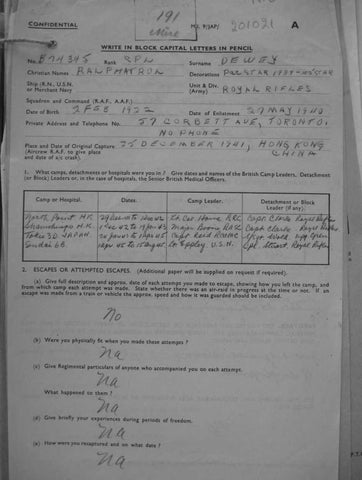 191
CONFIDENTIAL
M.I. 9/JAP/
201021 A
WRITE IN BLOCK CAPITAL LETTERS IN PENCIL
No. B74345 Rank RFN Surname DEWEY
Christian Names RALPH Decorations
Ship (R.N., U.S.N. or Merchant Navy) Unit & Div. (Army) ROYAL RIFLES
Squadron and Command (R.A.F. A.A.F.)
Date of Birth 2 FEB 1922 Date of Enlistment 27 MAY 1940
Private Address and Telephone No. 57 CORBETT AVE, TORONTO.
NO PHONE
Place and Date of Original Capture 25 DECEMBER 1941, HONG KONG
(Aircrew R.A.F. to give place and date of a/c crash). CHINA
1. What camps or hospitals were you in? Give dates and names of the British Camp Leaders, Detachment
(or Block) Leaders or, in the case of hospitals, the Senior British Medical Officers.
Camp or Hospital. Dates. Camp Leader. Detachment or Block Leader (if any).
North Point H.K. Lt Col. Home R.R.C. Capt Clarke Royal Rifles
Shamshuipo H.K. Major Boone Capt. Clarke Royal Rifles
Tokio 3D JAPAN Capt Reid
Sendai 6B. Lt Eppley, U.S.N. Stuart, Royal Rifles
2. ESCAPES OR ATTEMPTED ESCAPES. (Additional paper will be supplied on request if required).
(a) Give full description and approx. date of each attempt you made to escape, showing how you left the camp, and
from which camp each attempt was made. State whether there was an air-raid in progress at the time or not. If an
escape was made from a train or vehicle the approx. speed and how it was guarded should be included.
No
(b) Were you physically fit when you made these attempts?
Na
(c) Give Regimental particulars of anyone who accompanied you on each attempt.
Na
What happened to them?
Na
(d) Give briefly your experiences during periods of freedom.
Na
(e) How were you recaptured and on what date?
Na
P.T.